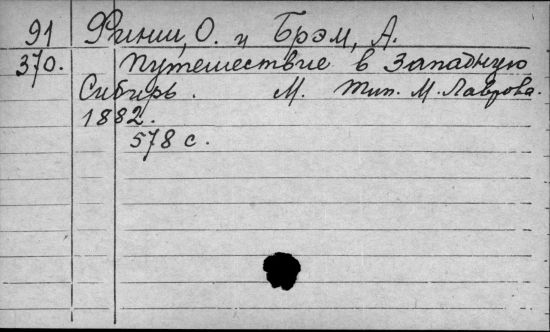 91 Финш, О. и Брэм, А.
370. Путешествие в Западную
Сибирь. М. Тип. М. Лаврова.
1882.
578 с.